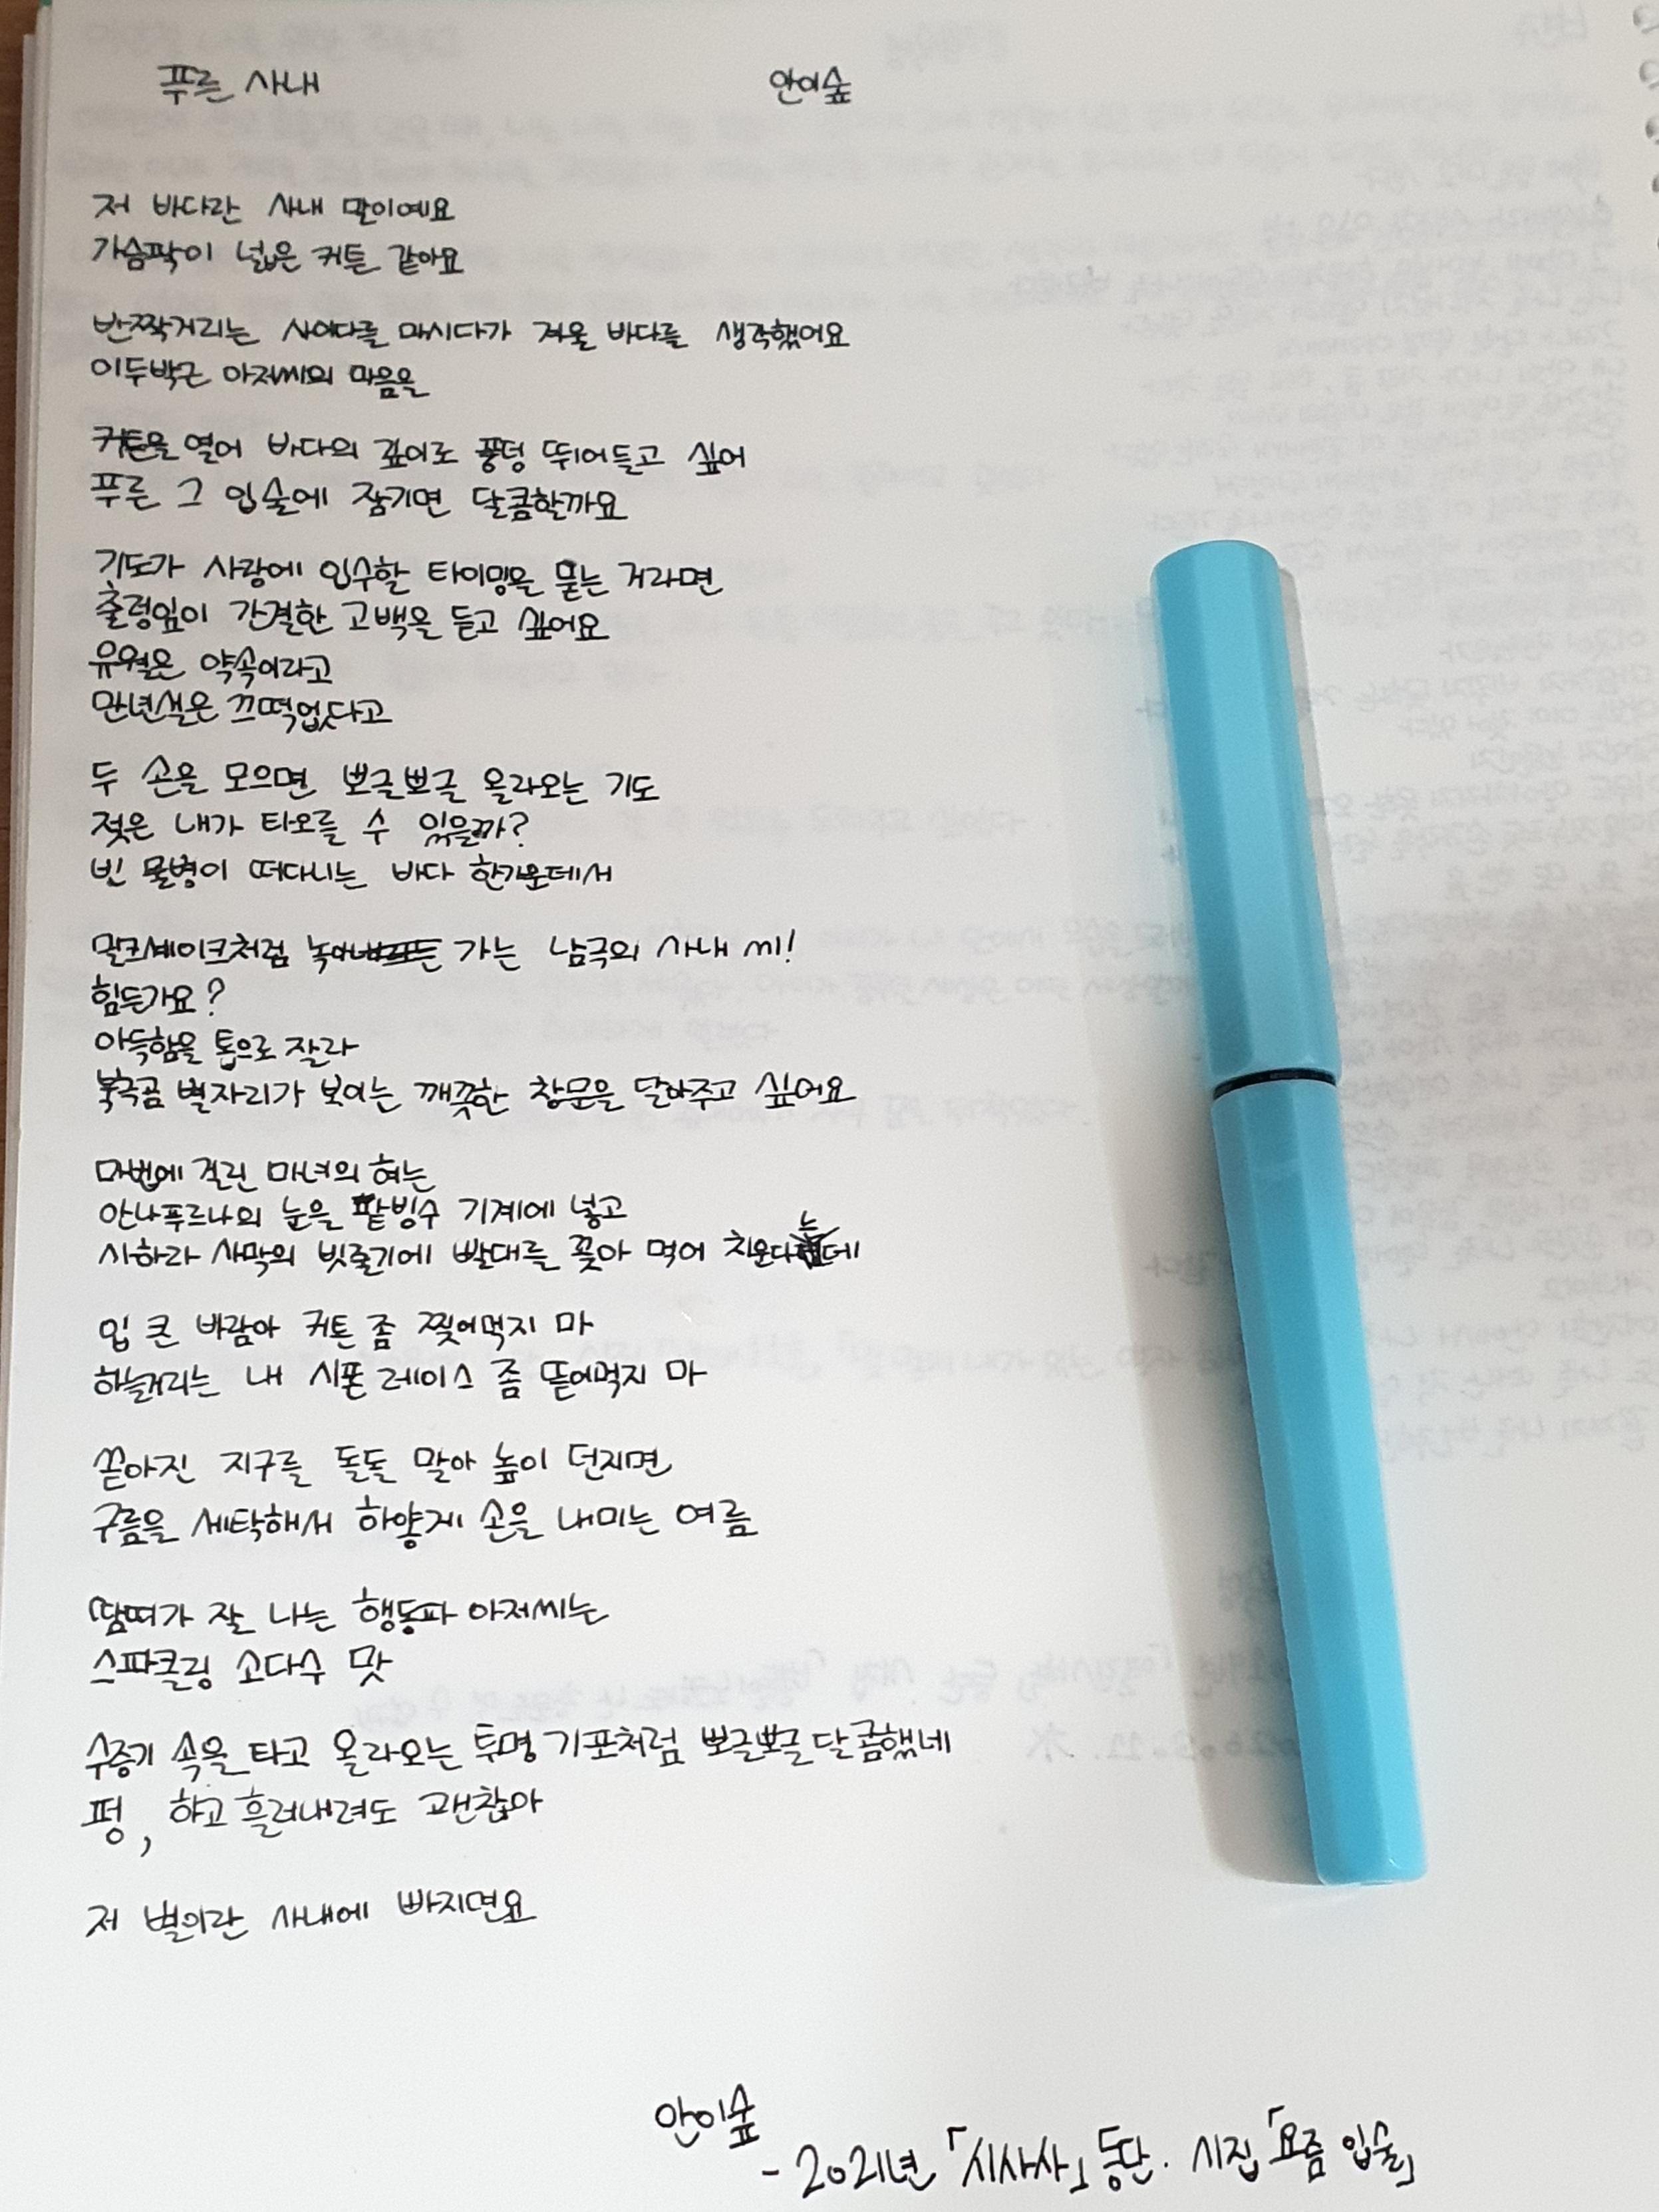 푸른 사내 안이숲
저 바다란 사내 말이예요
가슴팍이 넓은 커튼 같아요
반짝거리는 사이다를 마시다가 겨울 바다를 생각했어요
이두박근 아저씨의 마음을
커튼을 열어 바다의 깊이로 풍덩 뛰어들고 싶어
푸른 그 입술에 잠기면 달콤할까요
기도가 사랑에 입수할 타이밍을 묻는 거라면
출렁임이 간결한 고백을 듣고 싶어요
유월은 약속이라고
만년설은 끄떡없다고
두 손을 모으면 뽀글뽀글 올라오는 기도
젖은 내가 타오를 수 있을까?
빈 물병이 떠다니는 바다 한가운데서
밀크셰이크처럼 가는 남극의 사내 씨!
힘든가요?
아득함을 톱으로 잘라
북극곰 별자리가 보이는 깨끗한 창문을 달아주고 싶어요
마법에 걸린 마녀의 혀는
안나푸르나의 눈을 팥빙수 기계에 넣고
사하라 사막의 빗줄기에 빨대를 꽂아 먹어 치운다는데
입 큰 바람아 커튼 좀 찢어먹지 마
하늘거리는 내 시폰 레이스 좀 뜯어먹지 마
쏟아진 지구를 돌돌 말아 높이 던지면
구름을 세탁해서 하얗게 손을 내미는 여름
땀띠가 잘 나는 행동파 아저씨는
스파클링 소다수 맛
수증기 속을 타고 올라오는 투명 기포처럼 뽀글뽀글 달콤했네
펑, 하고 흘러내려도 괜찮아
저 별이란 사내에 빠지면요
안이숲
- 2021년 「시사사」 등단. 시집 「요즘 입술」